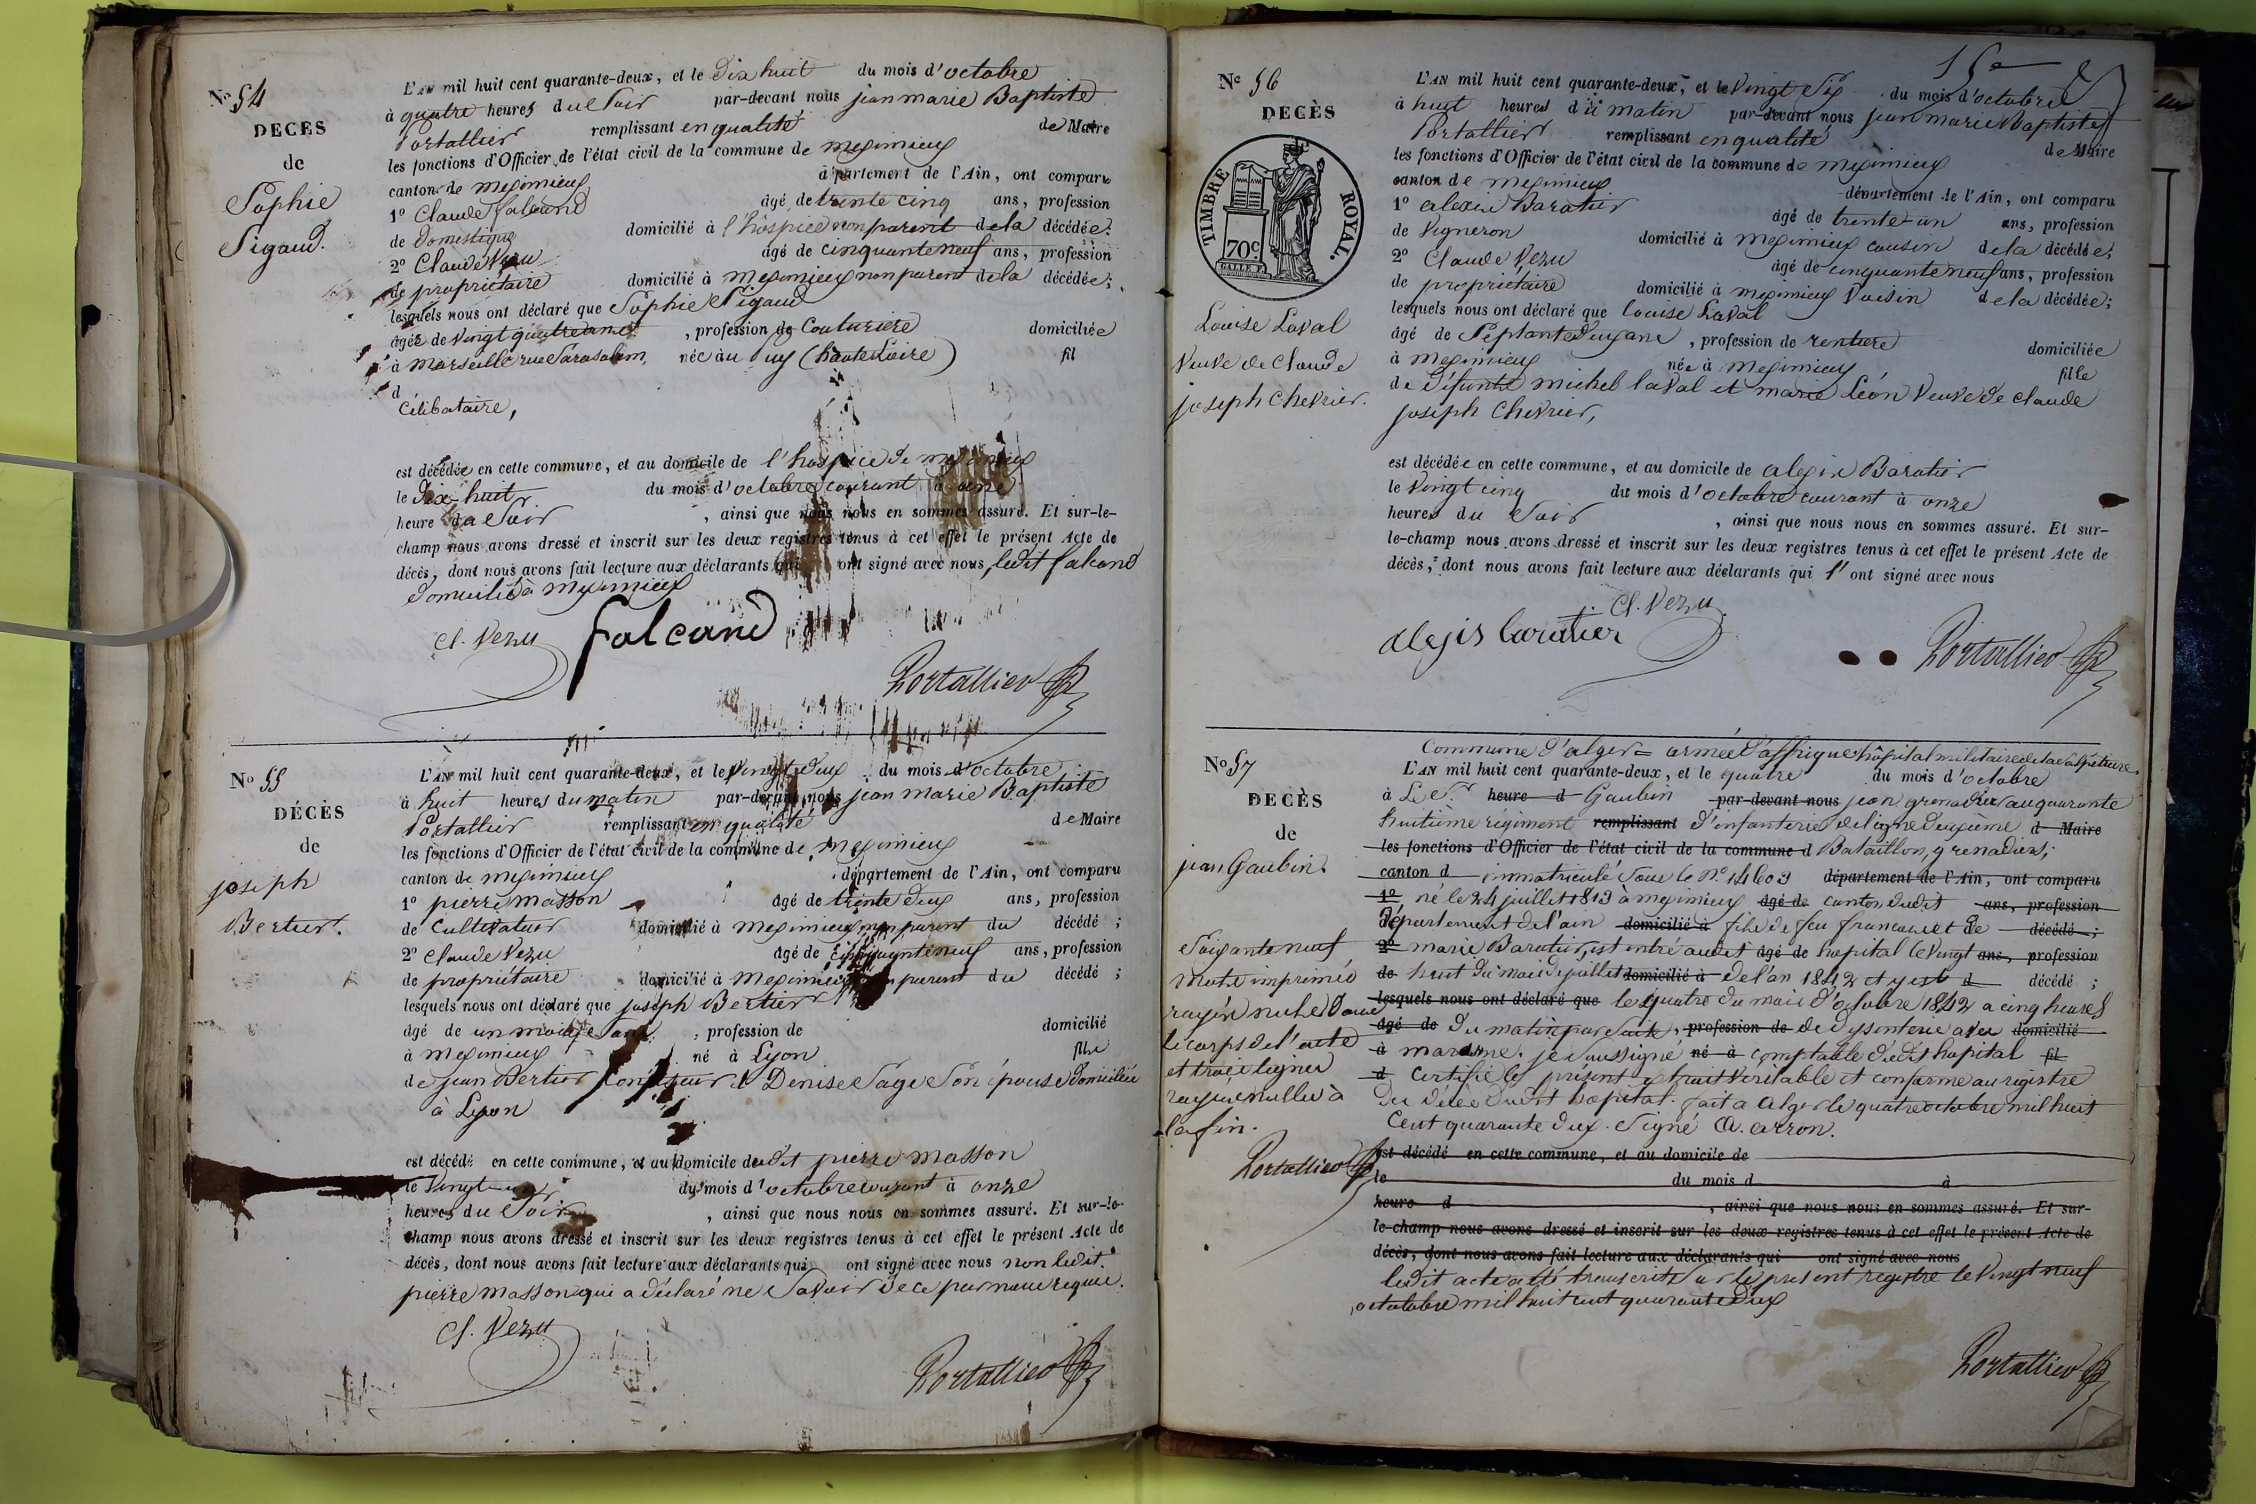 N° 54
DÉCÈS
de
Sophie
Sigaud.
L'AN mil huit cent quarante-deux, et le dix huit du mois d'octobre
à quatre heures du Soir par-devant nous jean marie Baptiste
Portallier remplissant en qualité de Maire
les fonctions d'Officier de l'état civil de la commune de meximieux
canton de meximieux département de l'Ain, ont comparu
1° Claude falcand âgé de trente cinq ans, profession
de domestique domicilié à l'hospice non parent de la décédée;
2° Claude Vezu âgé de cinquante neuf ans, profession
de propriétaire domicilié à meximieux non parent de la décédée;
lesquels nous ont déclaré que Sophie Sigaud
âgée de vingt quatre ans , profession de Couturière domiciliée
à marseille rue née au Puy (haute Loire) fil
d
Célibataire,
est décédée en cette commune, et au domicile de l'hospice de meximieux
le Dix-huit du mois d'octobre courant à une
heure du Soir , ainsi que nous nous en sommes assuré. Et sur-le-
champ nous avons dressé et inscrit sur les deux registres tenus à cet effet le présent Acte de
décès, dont nous avons fait lecture aux déclarants qui ont signé avec nous, ledit falcand
domicilié à meximieux
Cl. Vezu falcand
Portallier
N° 55
DÉCÈS
de
joseph
Bertier.
L'AN mil huit cent quarante-deux, et le vingt deux du mois d'octobre
à huit heures du matin par-devant nous jean marie Baptiste
Portallier remplissant en qualité de Maire
les fonctions d'Officier de l'état civil de la commune de meximieux
canton de meximieux département de l'Ain, ont comparu
1° pierre masson âgé de trente deux ans, profession
de Cultivateur domicilié à meximieux non parent du décédé ;
2° Claude Vezu âgé de cinquante neuf ans, profession
de propriétaire domicilié à meximieux non parent du décédé ;
lesquels nous ont déclaré que joseph Bertier
âgé de un mois , profession de domicilié
à meximieux né à Lyon fils
de jean Bertier et Denise Sage Son épouse domiciliés
à Lyon
est décédé en cette commune, et au domicile dudit pierre masson
le Vingt du mois d'octobre courant à onze
heures du Soir , ainsi que nous nous en sommes assuré. Et sur-le-
champ nous avons dressé et inscrit sur les deux registres tenus à cet effet le présent Acte de
décès, dont nous avons fait lecture aux déclarants qui ont signé avec nous non ledit
pierre masson qui a déclaré ne Savoir de ce par nous requis.
Cl. Vezu
Portallier
N° 56
DÉCÈS
TIMBRE ROYAL.
70c
Louise Laval
Veuve de Claude
joseph Chevrier.
L'AN mil huit cent quarante-deux, et le vingt Six du mois d'octobre
à huit heures du matin par-devant nous jean marie Baptiste
Portallier remplissant en qualité de Maire
les fonctions d'Officier de l'état civil de la commune de meximieux
canton de meximieux département de l'Ain, ont comparu
1° alexis Baratier âgé de trente-un ans, profession
de Vigneron domicilié à meximieux cousin de la décédée;
2° Claude Vezu âgé de cinquante neuf ans, profession
de propriétaire domicilié à meximieux Voisin de la décédée;
lesquels nous ont déclaré que Louise Laval
âgé de Septante deux ans , profession de rentière domiciliée
à meximieux née à meximieux fille
de défunts michel laval et marie Léon Veuve de Claude
joseph Chevrier,
est décédée en cette commune, et au domicile de alexis Baratier
le Vingt cinq du mois d'octobre courant à onze
heures du Soir , ainsi que nous nous en sommes assuré. Et sur-
le-champ nous avons dressé et inscrit sur les deux registres tenus à cet effet le présent Acte de
décès, dont nous avons fait lecture aux déclarants qui l'ont signé avec nous
Cl. Vezu
alexis baratier
Portallier
N° 57
DÉCÈS
de
jean Gaubin.
Soixante neuf
mots imprimés
rayés nuls Dans
le corps de l'acte
et trois lignes
rayées nulles à
la fin.
Portallier
Commune d'alger = armée d'affrique hôpital militaire de la Salpétrière.
L'AN mil huit cent quarante-deux, et le quatre du mois d'octobre
à Le Sr heure d Gaubin par-devant nous jean grenadier au quarante
huitième régiment remplissant d'infanterie de ligne deuxième d Maire
les fonctions d'Officier de l'état civil de la commune d Bataillon, grenadiers,
canton d immatriculé sous le N° 14603 département de l'Ain, ont comparu
1° né le 24 juillet 1813 à meximieux âgé de canton dudit ans, profession
département de l'ain domicilié à fils de feu francois et de décédé ;
2° marie Baratier, est entré audit âgé de hopital le Vingt ans, profession
de huit du mois de juillet domicilié à de l'an 1842 et y est d décédé ;
lesquels nous ont déclaré que le quatre du mois d'octobre 1842 a cinq heures
âgé de du matin par Suite, profession de de dysenterie avec domicilié
à marasme. je soussigné né à comptable dudit hopital fil
d Certifie le présent extrait Véritable et conforme au registre
des décès dudit hopital. fait a alger le quatre octobre mil huit
Cent quarante deux. Signé
est décédé en cette commune, et au domicile de
le du mois d à
heure d , ainsi que nous nous en sommes assuré. Et sur-
le-champ nous avons dressé et inscrit sur les deux registres tenus à cet effet le présent Acte de
décès, dont nous avons fait lecture aux déclarants qui ont signé avec nous
ledit acte a été transcrit sur le présent registre le Vingt neuf
octobre mil huit cent quarante deux
Portallier